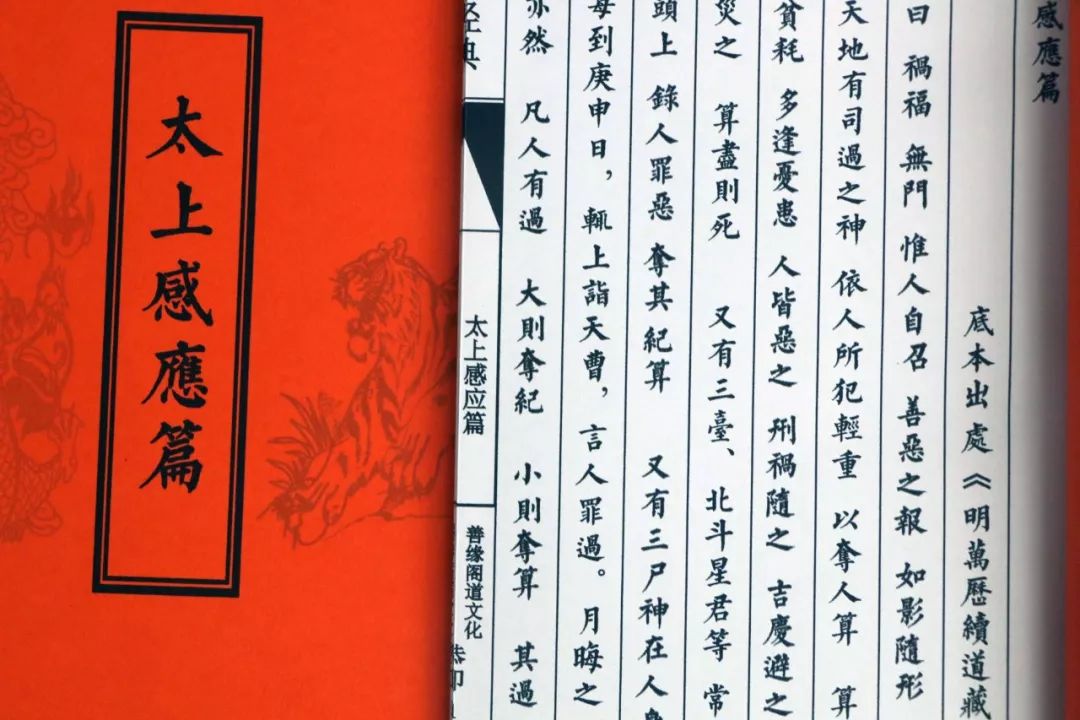 太上感應篇
感應篇
底本出處《明萬歷續道藏
曰 禍福 無門 惟人自召 善惡之報 如影隨形
天地有司過之神 依人所犯輕重 以奪人算 算
貧耗 多逢憂患 人皆惡之 刑禍隨之 吉慶避之
災之 算盡則死 又有三臺、北斗星君等 常
頭上 錄人罪惡 奪其紀算 又有三尸神在人身
每到庚申日，輒上詣天曹，言人罪過。月晦之
亦然 凡人有過 大則奪紀 小則奪算 其過
经典
太上感应篇
善缘阁道文化
恭印